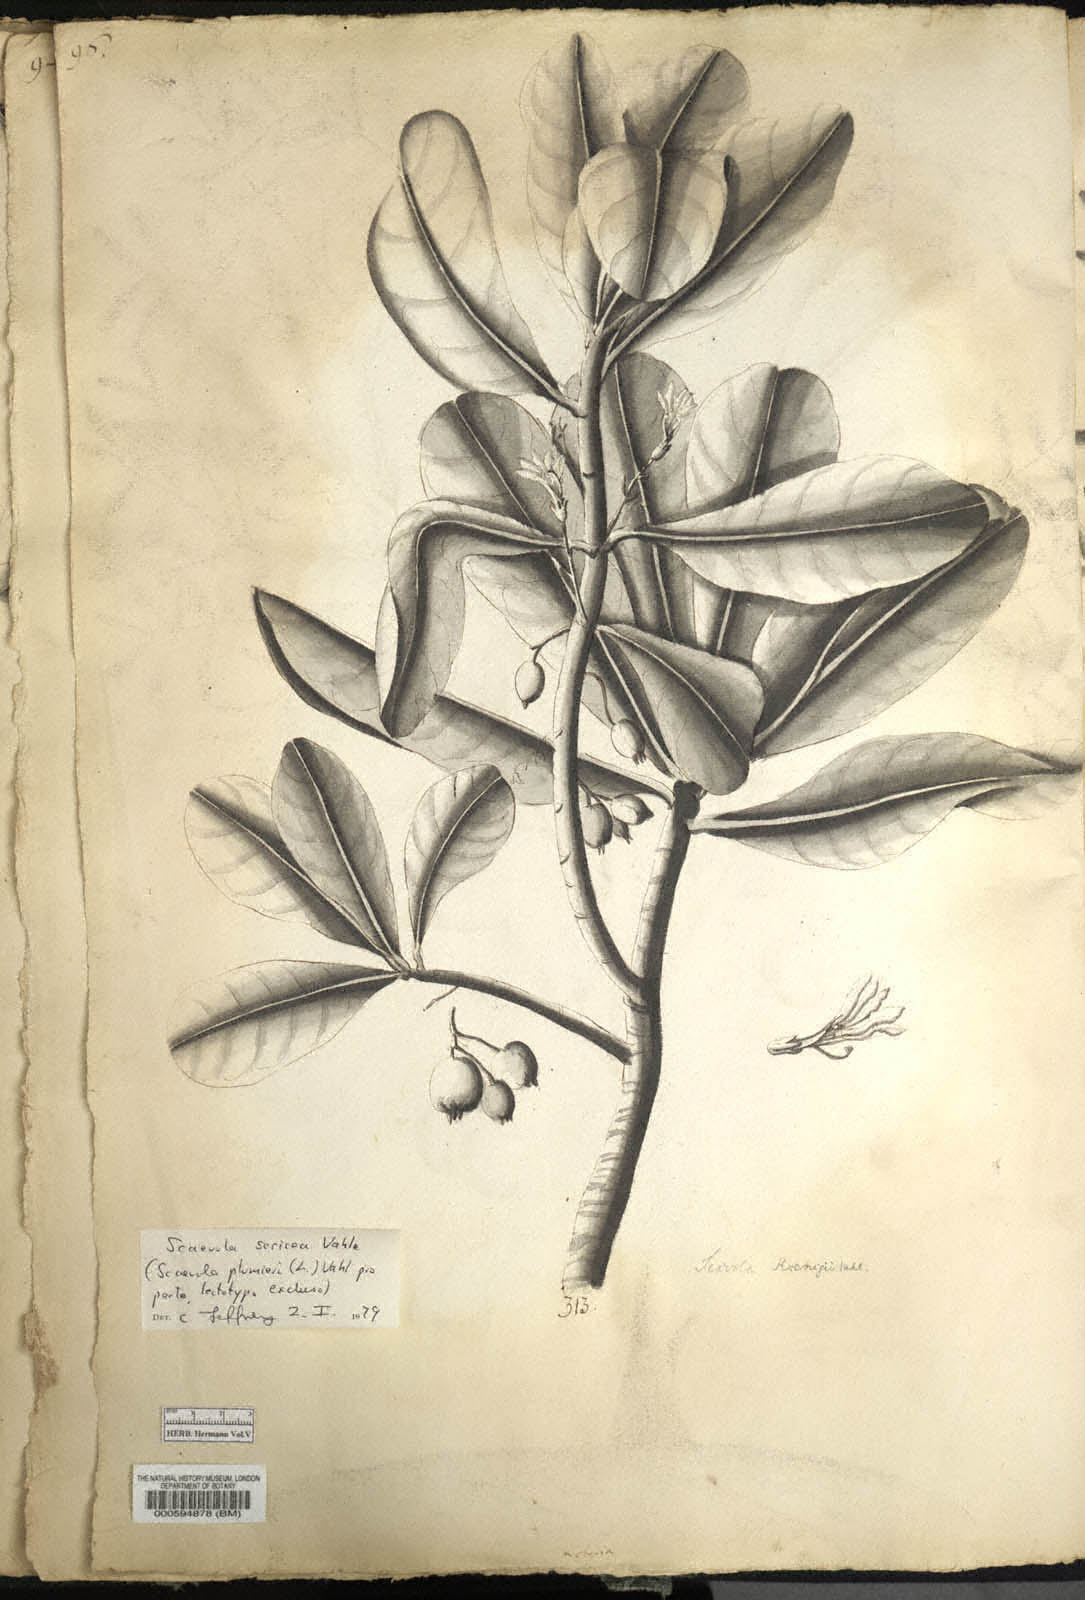 9- 90?
Scaevola sericea Vahl
(Scaevola plumieri (L.) Vahl pro
parte, lectotypo excluso)
DET. C Jeffrey 2.I. 1979
Scævola Koenigii Vahl.
313.
HERB. Hermann Vol.V
THE NATURAL HISTORY MUSEUM, LONDON
DEPARTMENT OF BOTANY
000594878 (BM)